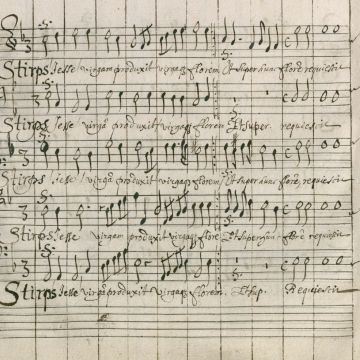 Stirps Iesse virgam produxit virgaq; florem Et super hunc florē requiescit
Stirps Iesse virgā produxit virgaq; florem Et super. requiescit
Stirps Iesse virgā produxit virgaq; florem Et super hunc florē requiescit
Stirps Iesse virgam produxit virgaq; florē Et super hūc florē requiescit
Stirps Iesse virgā produxit virgaq; florem. Et sup. Requiescit